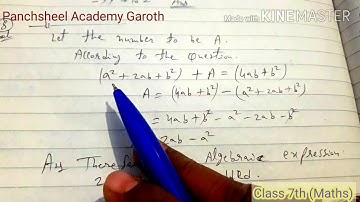 Panchsheel Academy Garoth
Made with KINEMASTER
Let the number to be A.
According to the question.
(a² + 2ab + b²) + A = (4ab + b²)
A = (4ab + b²) - (a² + 2ab + b²)
= 4ab + b² - a² - 2ab - b²
2ab - a²
Ans Therefore Algebraic expression
2
Class 7th (Maths)